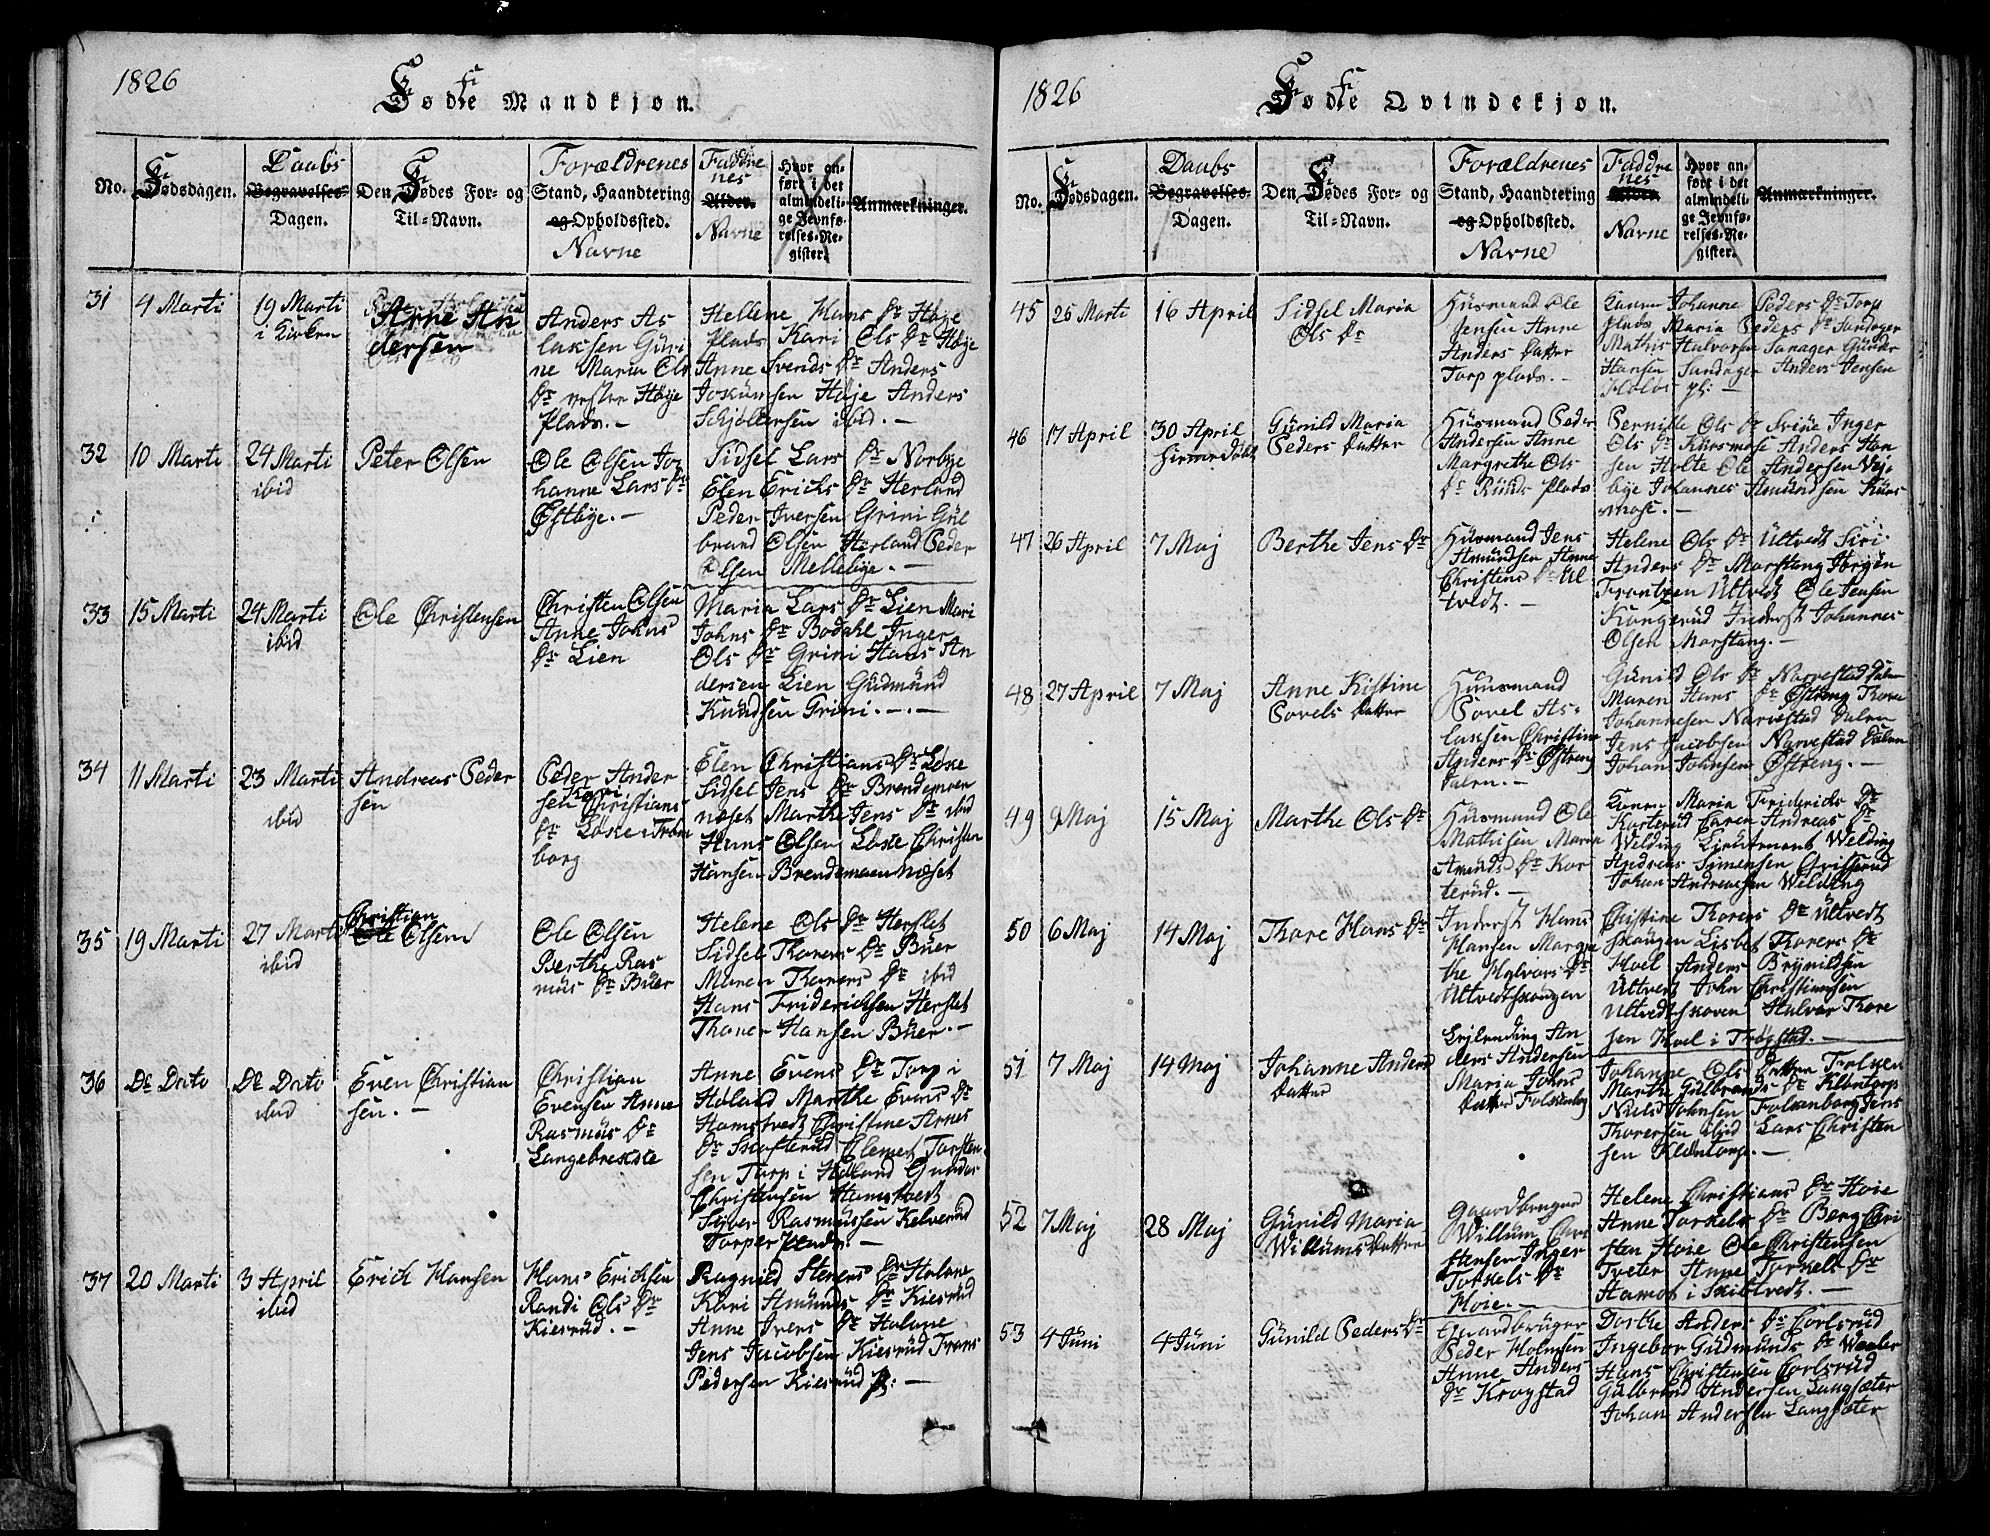 1826
Fødte Mandkjøn.
No.
Fødsdagen.
Daabs
Begravelses-
Dagen.
Den Fødes For- og
Til-Navn.
Forældrenes
Stand, Haandtering
og Opholdssted.
Navne
Faddre
nes
Alder.
Navne
Hvor an-
ført i det
almindeli-
ge Jevnfø-
relses-Re-
gister.
Anmærkninger.
31
4 Marti
19 Marti
i Kirken
Arne An
dersen
Anders As
laksen Guri
ne Maria Ols
Dr vestre Høje
Plads.-
Hellene Hans Dr Høje
Plads Kari Ols Dr Høje
Anne Svends Dr Anders
Joskimsen Høje Anders
Schjøllersen ibid.-
32
10 Marti
24 Marti
ibid
Peter Olsen
Ole Olsen Jo
hanne Lars Dr
Østbye.-
Sidsel Lars Dr Norbye
Elen Ericks Dr Herland
Peder Iversen Grini Gul
brand Olsen Herland Peder
Olsen Mellebye.-
33
15 Marti
24 Marti
ibid
Ole Christensen
Christen Olsen
Anne Johns
Dr Lien
Maria Lars Dr Lien Mari
Johns Dr Bodahl Inger
Ols Dr Grini Hans An
dersen Lien Gudmund
Knudsen Grini.-.-
34
11 Marti
23 Marti
ibid
Andreas Peder
sen
Peder Ander
sen Kari Christians
Dr Løke i Trøm
borg
Elen Christians Dr Løke
Sidsel Jens Dr Brendemoen
næset Marthe Jens Dr ibid
Hans Olsen Løke Christen
Hansen Brendemoen Næset
35
19 Marti
27 Marti
ibid
Christian
Ole Olsen
Ole Olsen
Berthe Ras
mus Dr Buer
Helene Ols Dr Herslet
Sidsel Thorers Dr Buer
Maren Thorers Dr ibid
Hans Friderichsen Herslet
Thorer Hansen Buer.-
36
De Dato
De Dato
ibid
Even Christian
sen.-
Christian
Evensen Anne
Rasmus Dr
Langebrekke
Anne Evens Dr Torp i
Høland Marthe Evens Dr
Hamstvedt Christine Arnes
Dr Skofterud Clemet Torsten
sen Torp i Høland Gunder
Christensen Hamstvedt
Siver Rasmussen Kelverud
Torper Plads.-
37
20 Marti
3 April
ibid
Erick Hansen
Hans Ericksen
Randi Ols Dr
Kiesrud.-
Ragnild Steners Dr Holane
Kari Amunds Dr Kiesrud
Anne Ivers Dr Holane
Jens Jacobsen Kiesrud Frans
Pedersen Kiesrud
1826
Fødte Qvindekjøn.
No.
Fødsdagen.
Daabs
Begravelses-
Dagen.
Den Fødes For- og
Til-Navn.
Forældrenes
Stand, Haandtering
og Opholdssted.
Navne
Faddre
nes
Alder.
Navne
Hvor an-
ført i det
almindeli-
ge Jevnfø-
relses-Re-
gister.
Anmærkninger.
45
25 Marti
16 April
Sidsel Maria
Ols Dr
Huusmand Ole
Jensen Anne
Anders Datter
Torp plads.-
Karen Johanne Peders Dr Torp
plads Maria Peders Dr Sandager
Mathis Halvorsen Sanager Gunder
Hansen Sandager Anders Jensen
Holøs pl:-
46
17 April
30 April
Gunild Maria
Peders Datter
Huusmand Peder
Andersen Anne
Margrethe Ols
Dr Ruuds Plads
Pernille Ols Dr Sviue Inger
Ols Dr Kursmose Anders Han
sen Holte Ole Andersen Vej
bye Johannes Amundsen Kurs
mose.-
47
26 April
7 Maj
Berthe Jens Dr
Huusmand Jens
Amundsen Anne
Christens Dr Ul
tvedt.-
Helene Ols Dr Ultvedt Siri
Anders Dr Morstang Jørgen
Frantzen Ultvedt Ole Jensen
Kongerud Inderst Johannes
Olsen Morstang.-
48
27 April
7 Maj
Anne Kistine
Povels Datter
Huusmand
Povel As-
laksen Christine
Anders Dr Østreng
Dalen.-
Gunild Ols Dr Narvestad Dalen
Maren Hans Dr Østreng Thore
Johannesen Narvestad Dalen
Jens Jacobsen Narvestad Dalen
Johan Johnsen Østreng.-
49
9 Maj
15 Maj
Marthe Ols Dr
Huusmand Ole
Mathisen Maria
Amunds Dr Kor
terud.-
Karen Maria Friderichs Dr
Korterud Caren Andreas Dr
Welding Lieutenant Welding
Andreas Simensen Grisserud
Johan Andreassen Welding
50
6 Maj
14 Maj
Thore Hans Dr
Inderst Hans
Hansen Margre
the Halvors Dr
Ultvedtskougen
Christine Thorers Dr Ultvedt
skougen Lisbet Thorers Dr
Hoel Anders Brynildsen
Ultvedt John Christiansen
Ultvedtskoven Halvor Thore
sen Hoel i Trøgstad.-
51
7 Maj
14 Maj
Johanne Anders
Datter
An
ders Andersen
Maria Johns
Datter Falkenborg
Johanne Ols Datter
Marthe Gulbrands Dr Klontorp
Niels Johnsen Falkenborg Jens
Thorersen ibid Lars Christen
sen Klontorp.-
52
7 Maj
28 Maj
Gunild Maria
Willums Datter
Gaardbruger
Willum Chri
stensen Inger
Torkels Dr
Hoie.-
Helene Christians Dr Hoie
Anne Torkels Dr Berg Chri
sten Hoie Ole Christensen
Tveter Anne Torkels Dr
Hamot i Skibtvedt.-
53
4 Juni
4 Juni
Gunild Peders Dr
Gaardbruger
Peder Holmsen
Anne Anders
Dr Krogstad
Dorthe Anders Dr Corlsrud
Ingebor Gudmunds Dr Waaler
Hans Christensen Corlsrud
Gulbrand Andersen Langsæter
Johan Andersen Langsæter